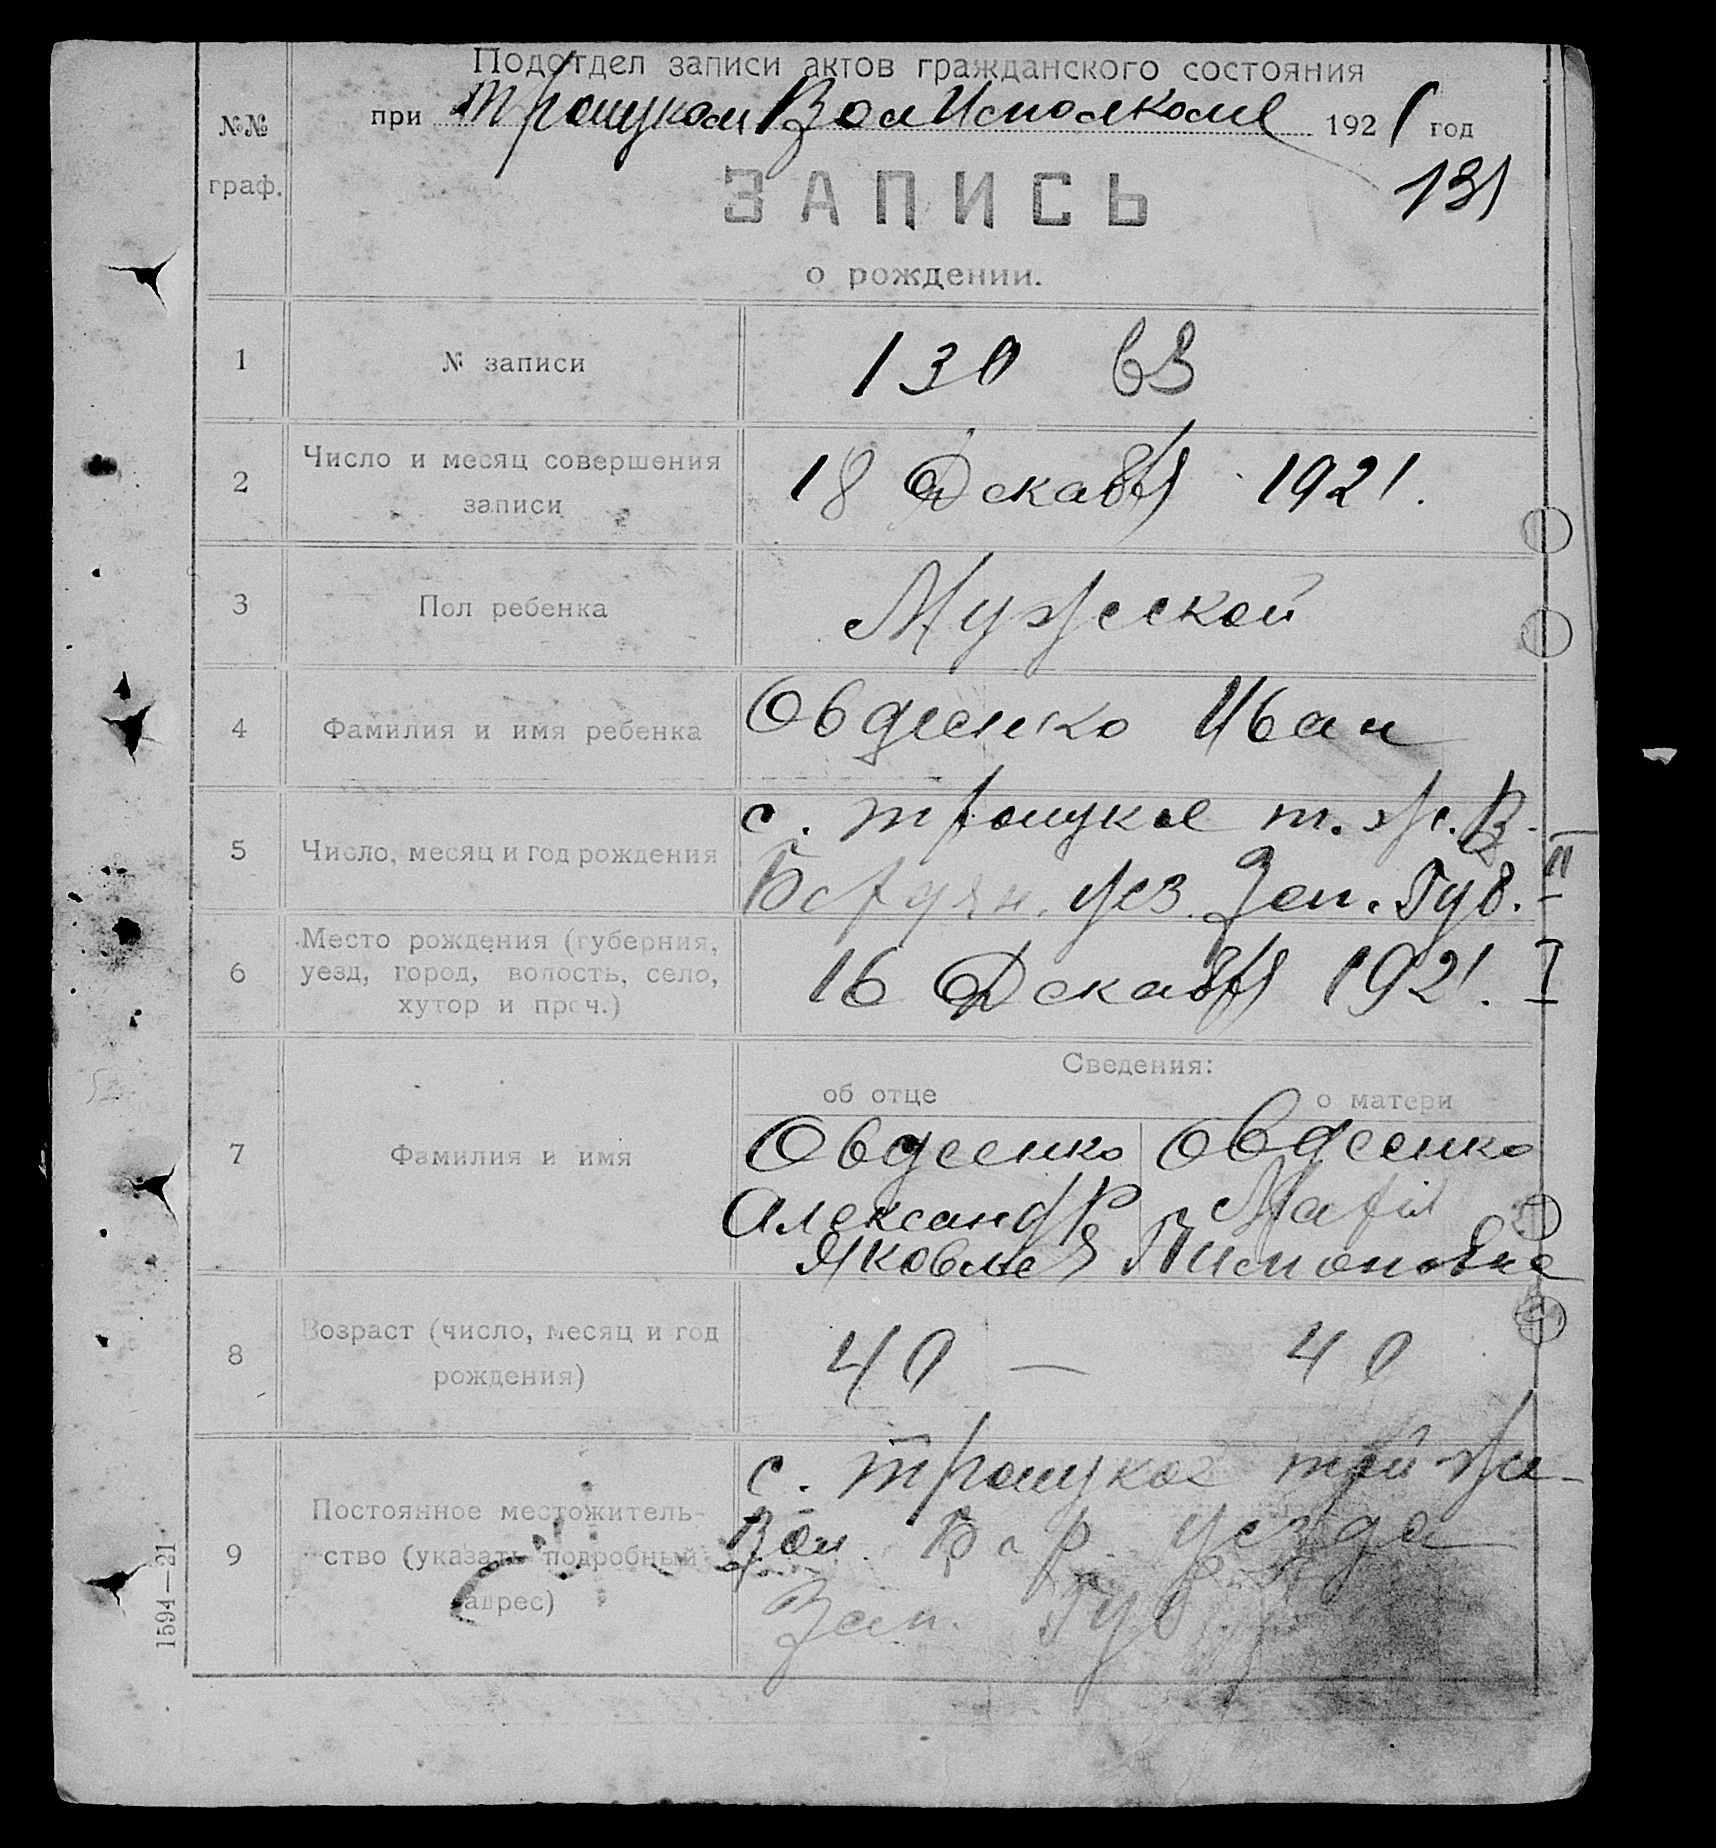 Подотдел записи актов гражданского состояния
при Троицком ВолИсполкоме 1921 год
№№ граф.
131
ЗАПИСЬ
о рождении.
1 № записи 130 63
2 Число и месяц совершения записи 18 Декабря 1921.
3 Пол ребенка Мужеской
4 Фамилия и имя ребенка Овдеенко Иван
5 Число, месяц и год рождения с. Троицкое т. ж. В.
Бердян. уез. Зап. Губ. II
6 Место рождения (губерния, уезд, город, волость, село, хутор и проч.) 16 Декабря 1921. I
Сведения:
об отце о матери
7 Фамилия и имя Овдеенко Овдеенко
Александр Мария
Яковлев Пимоновна
8 Возраст (число, месяц и год рождения) 40 — 40
9 Постоянное местожитель-
ство (указать подробный
адрес)
с. Троицкое той же
Вол. Бер. уезда
Зап. Губ
1594—21